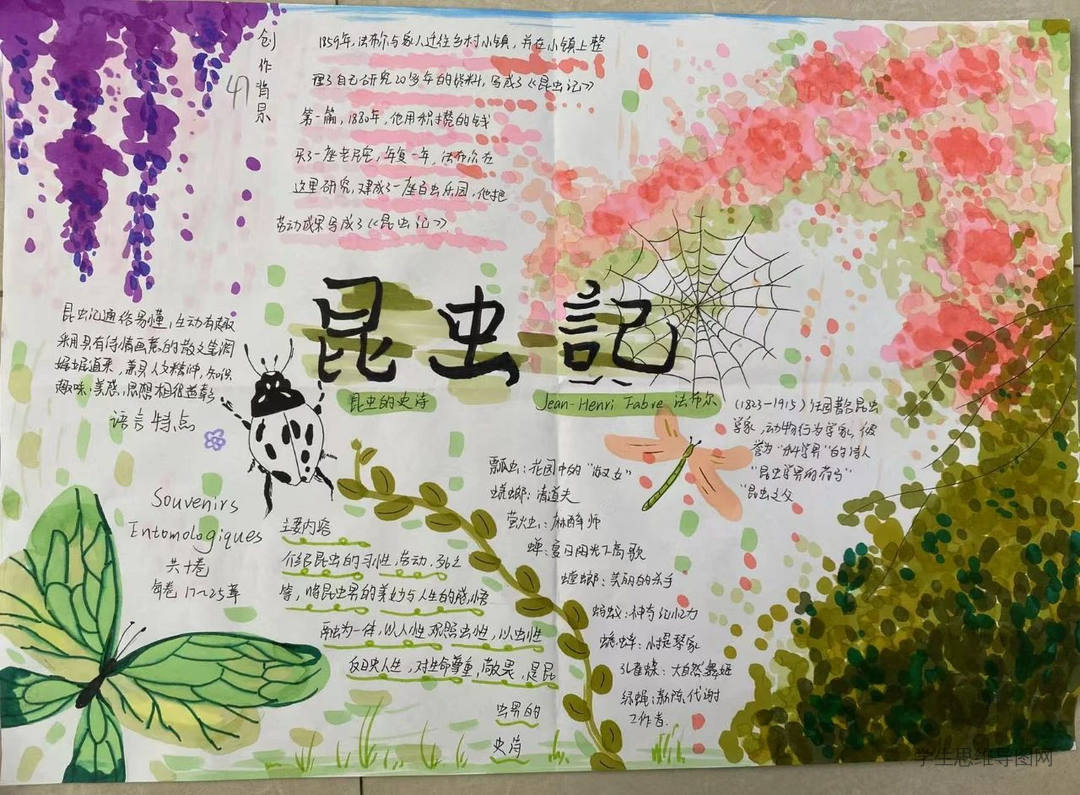 创作背景
47
1859年,法布尔与家人迁往乡村小镇,并在小镇上整
理了自己研究20多年的资料,写成了《昆虫记》
第一篇,1880年,他用积攒的钱
买了一座老民宅,年复一年,法布尔在
这里研究,建成了一座百虫乐园,他把
劳动成果写成了《昆虫记》
昆虫記
昆虫的史诗
Jean-Henri Fabre 法布尔
(1823-1915)法国著名昆虫
学家,动物行为学家,被
誉为"科学界"的诗人
"昆虫学界的荷马"
"昆虫之父
昆虫记通俗易懂,生动有趣
采用具有诗情画意的散文笔调
娓娓道来,兼具人文精神,知识
趣味,美感,思想相得益彰
语言特点
Souvenirs
Entomologiques
共十卷
每卷17~25章
主要内容
介绍昆虫的习性,劳动,死亡
等,将昆虫界的美妙与人生的感悟
融为一体,以人性观照虫性,以虫性
反映人生,对生命尊重,敬畏,是昆
虫界的
史诗
瓢虫:花园中的"淑女"
蜣螂:清道夫
萤火虫:麻醉师
蝉:夏日阳光下高歌
螳螂:美丽的杀手
蚂蚁:神奇记忆力
蟋蟀:小提琴家
孔雀蝶:大自然舞姬
绿蝇:新陈代谢
工作者.
学生思维导图网